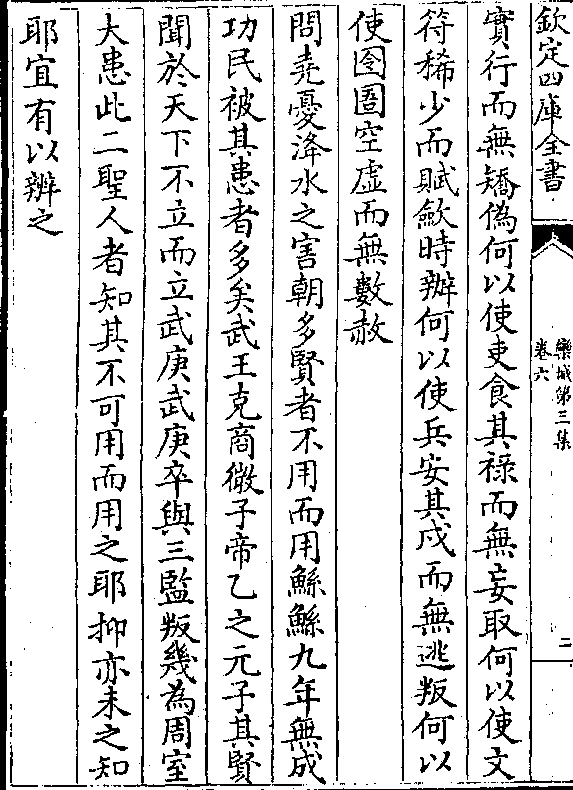 欽定四庫全書
欒城第三集
卷六
二
實行而無矯偽何以使吏食其祿而無妄取何以使文
符稀少而賦斂時辦何以使兵安其戍而無逃叛何以
使囹圄空虛而無數赦
問堯憂洚水之害朝多賢者不用而用鯀鯀九年無成
功民被其患者多矣武王克商微子帝乙之元子其賢
聞於天下不立而立武庚武庚卒與三監叛幾為周室
大患此二聖人者知其不可用而用之耶抑亦未之知
耶宜有以辨之